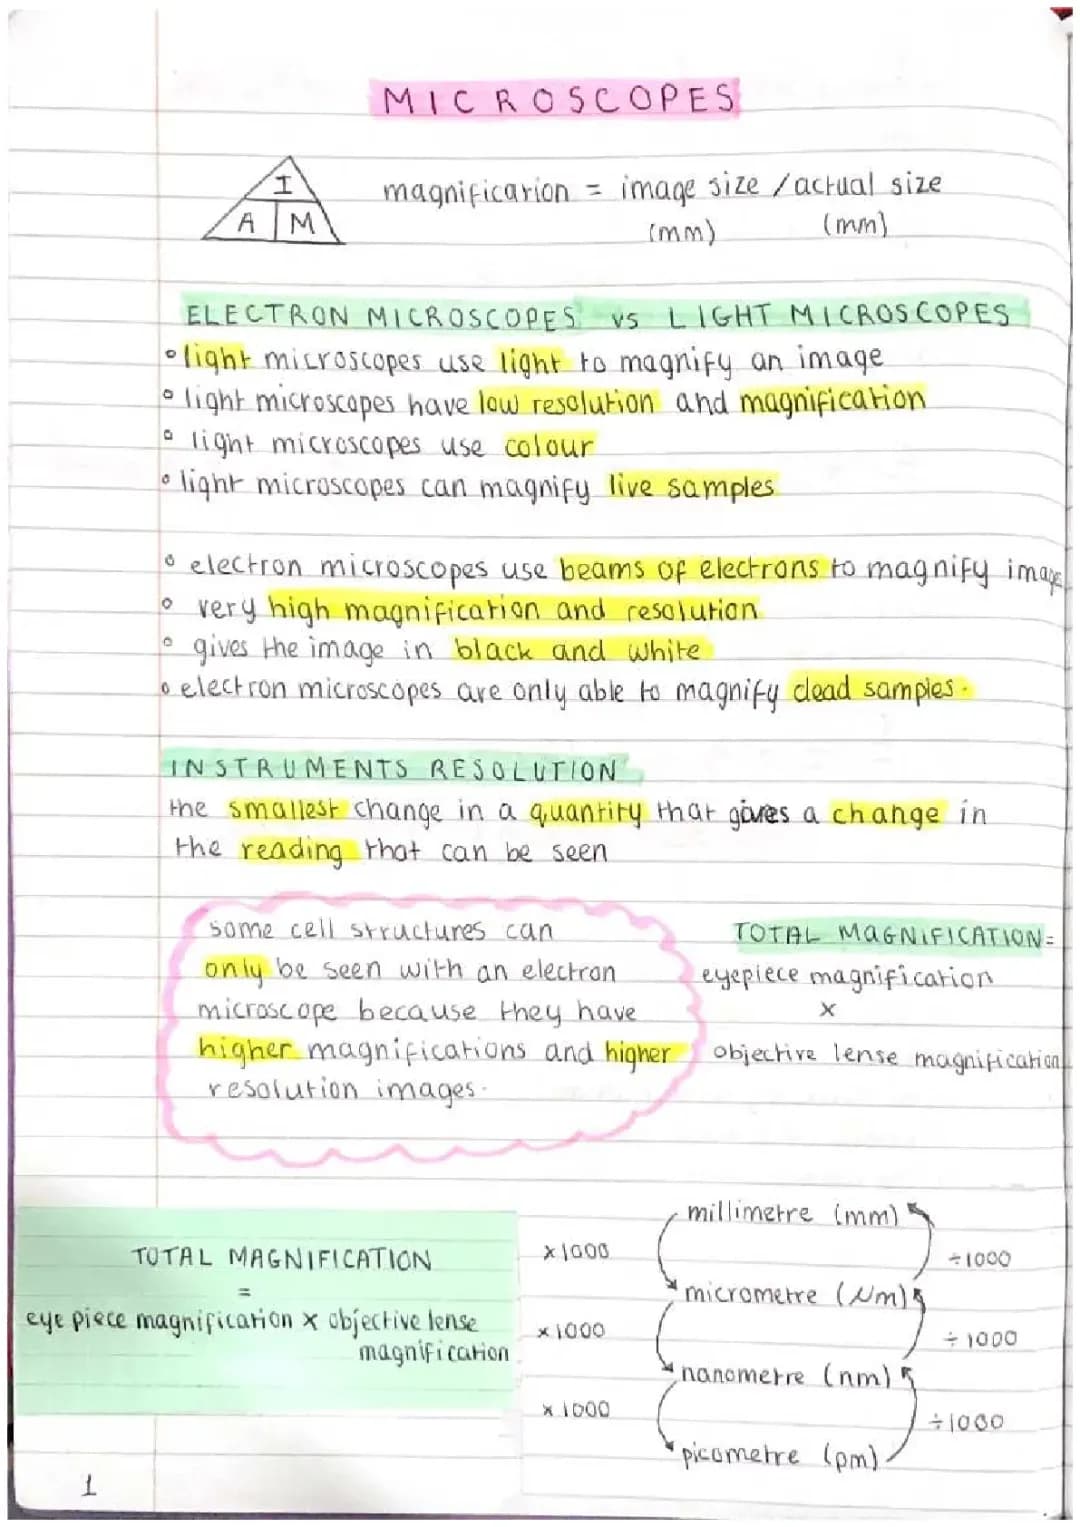 MICROSCOPES
I
A M
magnification = image size / actual size
(mm) (mm)
ELECTRON MICROSCOPES vs LIGHT MICROSCOPES
• light microscopes use light to magnify an image
• light microscopes have low resolution and magnification
• light microscopes use colour
• light microscopes can magnify live samples
• electron microscopes use beams of electrons to magnify image
• very high magnification and resolution
• gives the image in black and white
• electron microscopes are only able to magnify dead samples.
INSTRUMENTS RESOLUTION
the smallest change in a quantity that gives a change in
the reading that can be seen
some cell structures can
only be seen with an electron
microscope because they have
higher magnifications and higher
resolution images.
TOTAL MAGNIFICATION =
eyepiece magnification
×
objective lense magnification
TOTAL MAGNIFICATION
=
eye piece magnification × objective lense
magnification
millimetre (mm)
×1000 ÷1000
micrometre (μm)
×1000 ÷1000
nanometre (nm)
×1000 ÷1000
picometre (pm)
1